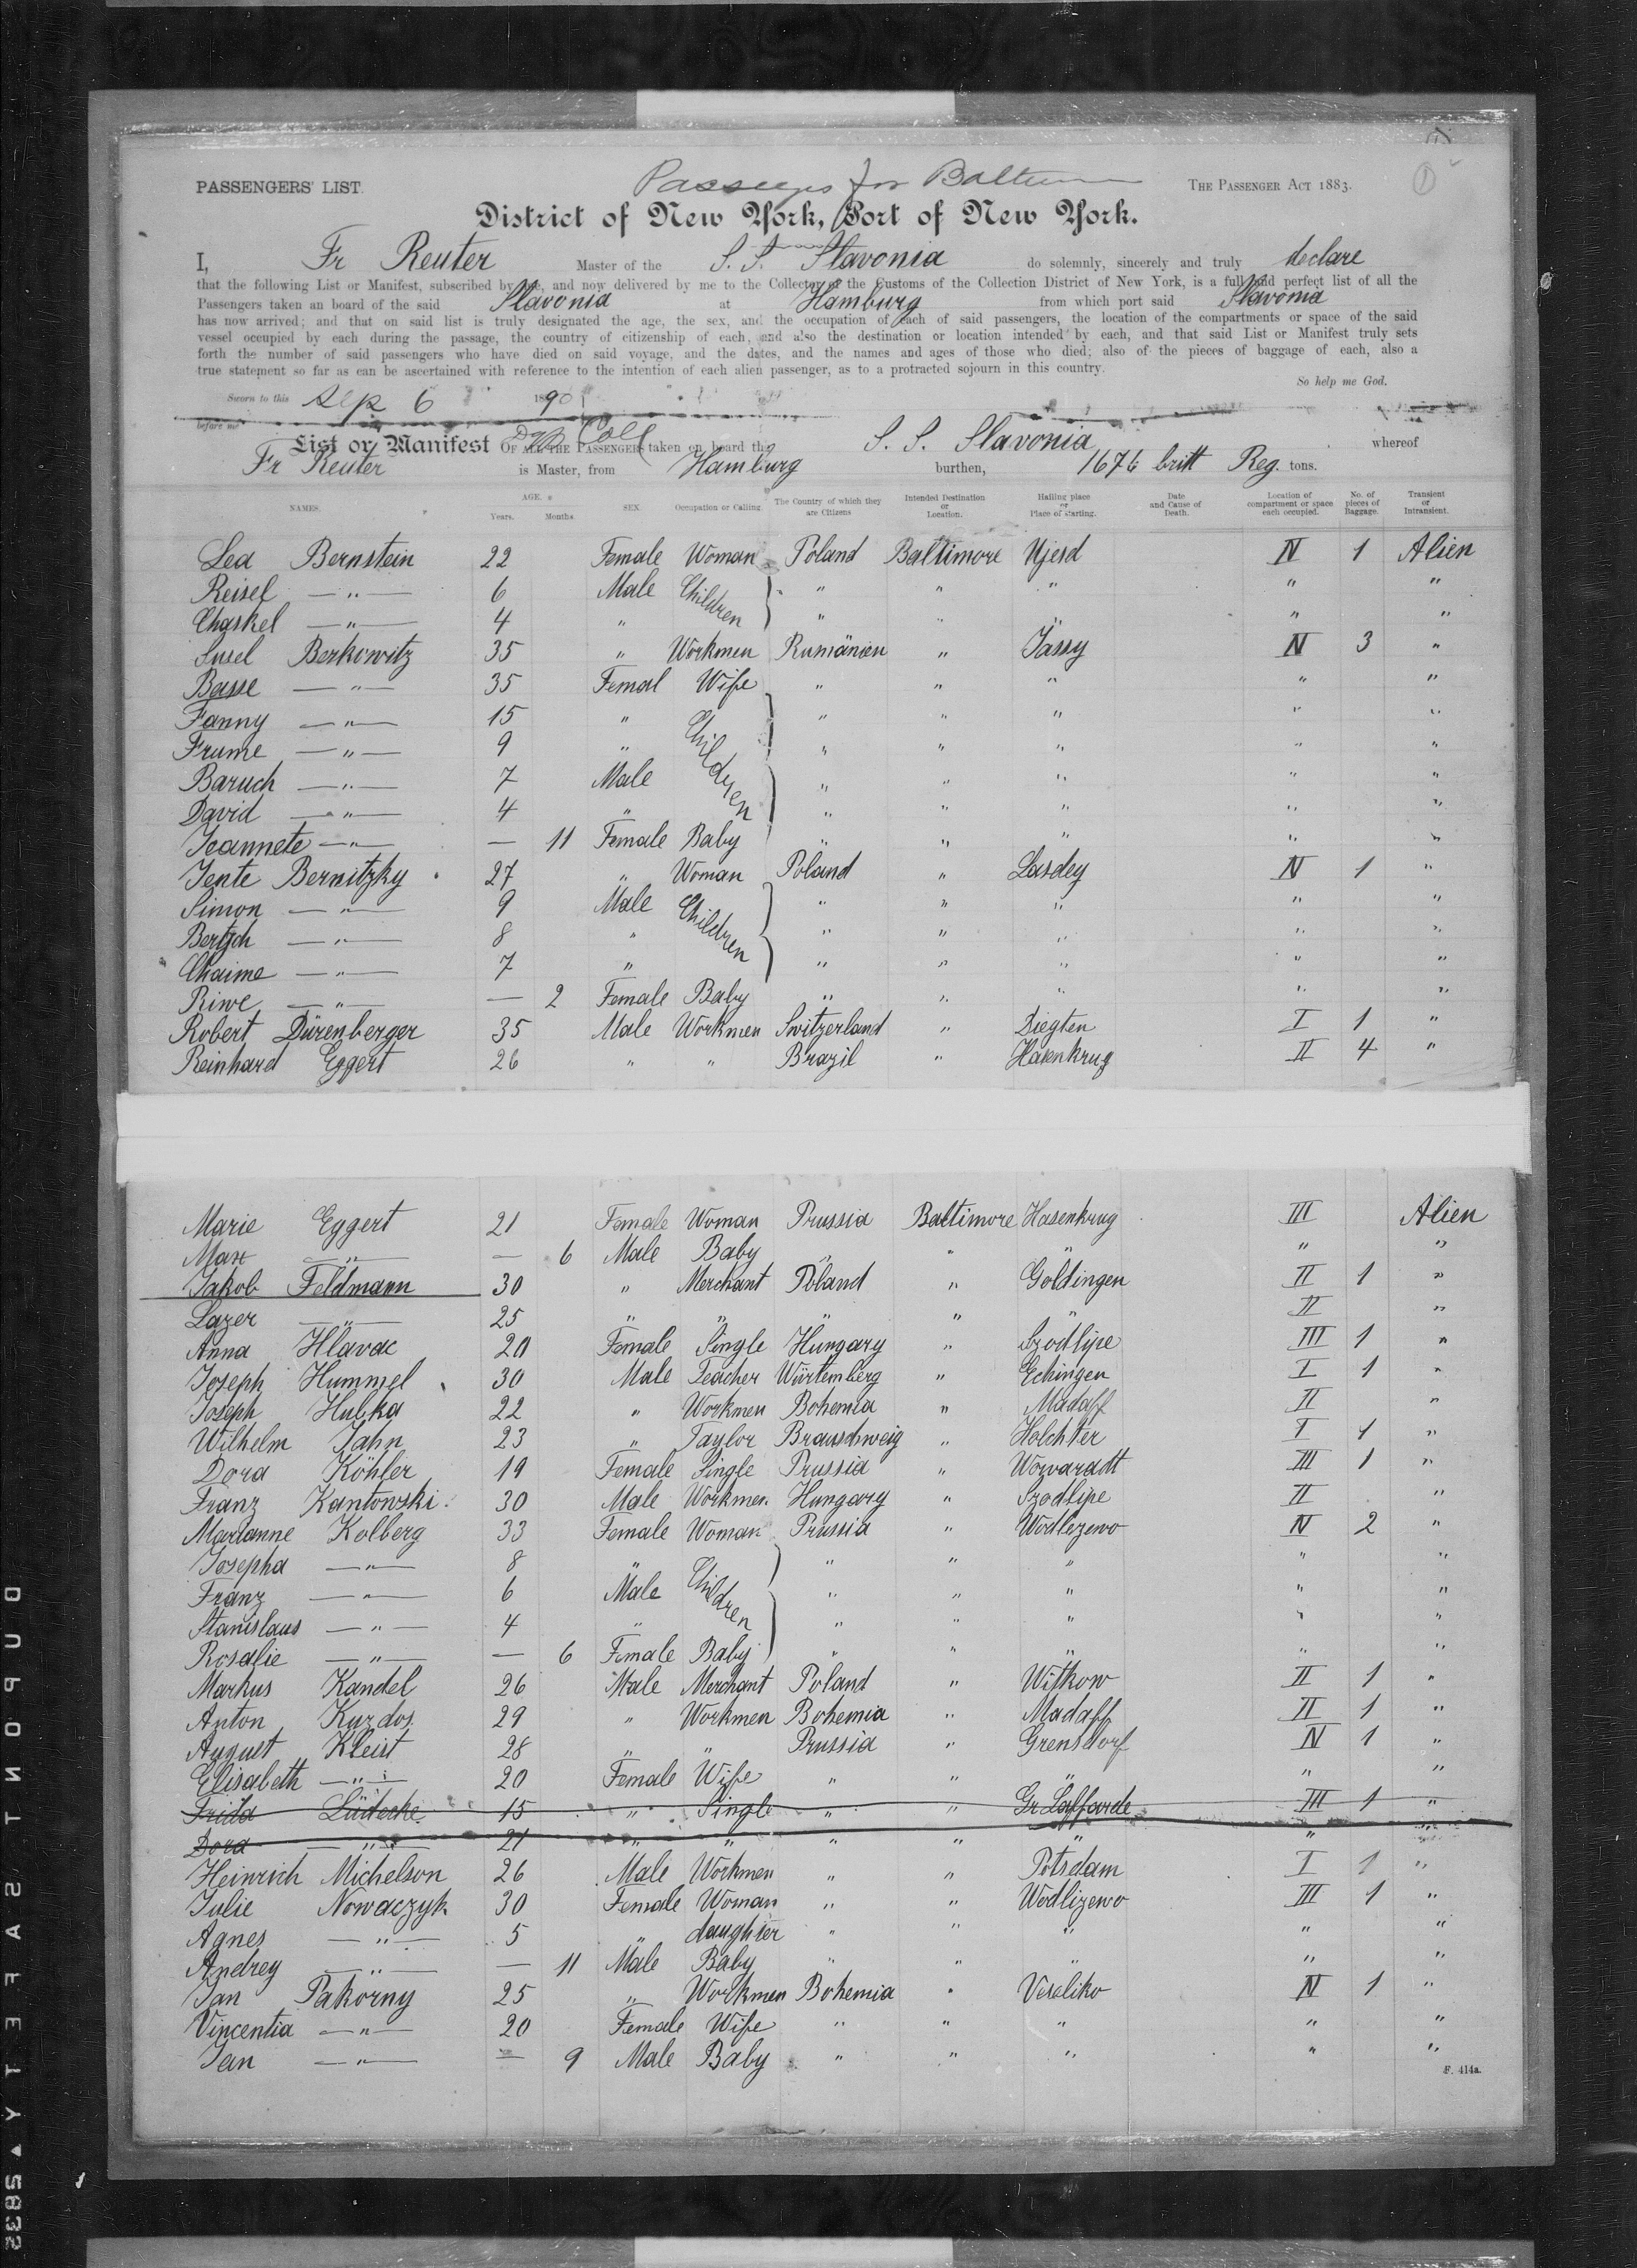 Passengers for Baltimore
PASSENGERS' LIST. THE PASSENGER ACT 1883.
District of New York, Port of New York.
I, Fr Reuter Master of the S. S. Slavonia do solemnly, sincerely and truly declare
that the following List or Manifest, subscribed by me, and now delivered by me to the Collector of the Customs of the Collection District of New York, is a full and perfect list of all the
Passengers taken an board of the said Slavonia at Hamburg from which port said Slavonia
has now arrived; and that on said list is truly designated the age, the sex, and the occupation of each of said passengers, the location of the compartments or space of the said
vessel occupied by each during the passage, the country of citizenship of each, and also the destination or location intended by each, and that said List or Manifest truly sets
forth the number of said passengers who have died on said voyage, and the dates, and the names and ages of those who died; also of the pieces of baggage of each, also a
true statement so far as can be ascertained with reference to the intention of each alien passenger, as to a protracted sojourn in this country.
So help me God.
Sworn to this Sep 6 1890
before me Dep Coll
List or Manifest OF ALL THE PASSENGERS taken on board the S. S. Slavonia whereof
Fr Reuter is Master, from Hamburg burthen, 1676 britt Reg. tons.
NAMES. AGE. Years. Months SEX. Occupation or Calling. The Country of which they are Citizens Intended Destination or Location. Hailing place or Place of Starting. Date and Cause of Death. Location of compartment or space each occupied. No. of pieces of Baggage. Transient or Intransient.
Lea Bernstein 22 Female Woman Poland Baltimore Ujesd IV 1 Alien
Reisel — " — 6 Male Children " " " " "
Chaskel — " — 4 " " " " " "
Susel Berkowitz 35 " Workmen Rumänien " Jassy IV 3 "
Basse — " — 35 Femal Wife " " " " "
Fanny — " — 15 " Children " " " " "
Frume — " — 9 " " " " " "
Baruch — " — 7 Male " " " " "
David — " — 4 " " " " " "
Jeannete — " — — 11 Female Baby " " " " "
Jente Bernitzky 27 " Woman Poland " Lasdey IV 1 "
Simon — " — 9 Male Children " " " " "
Bertsch — " — 8 " " " " " "
Chaime — " — 7 " " " " " "
Riwe — " — — 2 Female Baby " " " " "
Robert Dürenberger 35 Male Workmen Switzerland " Diegten I 1 "
Reinhard Eggert 26 " " Brazil " Hasenkrug II 4 "
Marie Eggert 21 Female Woman Prussia Baltimore Hasenkrug III Alien
Max — " — — 6 Male Baby " " " " "
Jakob Feldmann 30 " Merchant Poland " Goldingen II 1 "
Lazer — " — 25 " " " " " II "
Anna Hlavac 20 Female Single Hungary " Szodlipe III 1 "
Joseph Hummel 30 Male Teacher Würtemberg " Echingen I 1 "
Joseph Hubka 22 " Workmen Bohemia " Madaff II "
Wilhelm Jahn 23 " Taylor Brauschweig " Holchter I 1 "
Dora Köhler 19 Female Single Prussia " Worvaradt III 1 "
Franz Kantowski 30 Male Workmen Hungary " Szodlipe II "
Marianne Kolberg 33 Female Woman Prussia " Wodlezewo IV 2 "
Josepha — " — 8 " Children " " " " "
Franz — " — 6 Male " " " " "
Stanislaus — " — 4 " " " " " "
Rosalie — " — — 6 Female Baby " " " " "
Markus Kandel 26 Male Merchant Poland " Witkow II 1 "
Anton Kuzdos 29 " Workmen Bohemia " Madaff II 1 "
August Kleist 28 " " Prussia " Grensdorf IV 1 "
Elisabeth — " — 20 Female Wife " " " " "
Frida Lüdecke 15 " Single " " Gr Lafferde III 1 "
Dora — " — 21 " " " " " " "
Heinrich Michelson 26 Male Workmen " " Potsdam I 1 "
Julie Nowaczyk 30 Female Woman " " Wodlizewo III 1 "
Agnes — " — 5 " daughter " " " " "
Andrey — " — — 11 Male Baby " " " " "
Jan Pakorny 25 " Workmen Bohemia " Veseliko IV 1 "
Vincentia — " — 20 Female Wife " " " " "
Jan — " — — 9 Male Baby " " " " "
F. 414a.